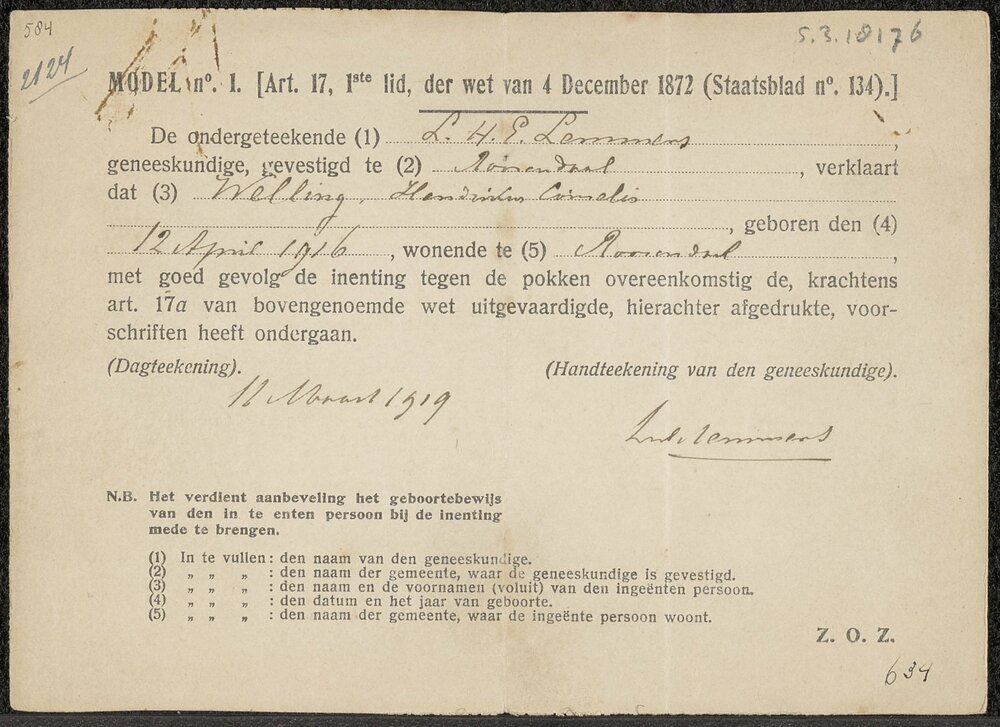 584
2124
5.3.18176
MODEL nº. 1. [Art. 17, 1ste lid, der wet van 4 December 1872 (Staatsblad nº. 134).]
De ondergeteekende (1) L. H. E. Lemmers,
geneeskundige, gevestigd te (2) Roosendaal, verklaart
dat (3) Welling, Hendrikus Cornelis
, geboren den (4)
12 April 1916, wonende te (5) Roosendaal,
met goed gevolg de inenting tegen de pokken overeenkomstig de, krachtens
art. 17a van bovengenoemde wet uitgevaardigde, hierachter afgedrukte, voor-
schriften heeft ondergaan.
(Dagteekening). (Handteekening van den geneeskundige).
11 Maart 1919
Lemmers
N.B. Het verdient aanbeveling het geboortebewijs
van den in te enten persoon bij de inenting
mede te brengen.
(1) In te vullen : den naam van den geneeskundige.
(2) „ „ „ : den naam der gemeente, waar de geneeskundige is gevestigd.
(3) „ „ „ : den naam en de voornamen (voluit) van den ingeënten persoon.
(4) „ „ „ : den datum en het jaar van geboorte.
(5) „ „ „ : den naam der gemeente, waar de ingeënte persoon woont.
Z. O. Z.
634